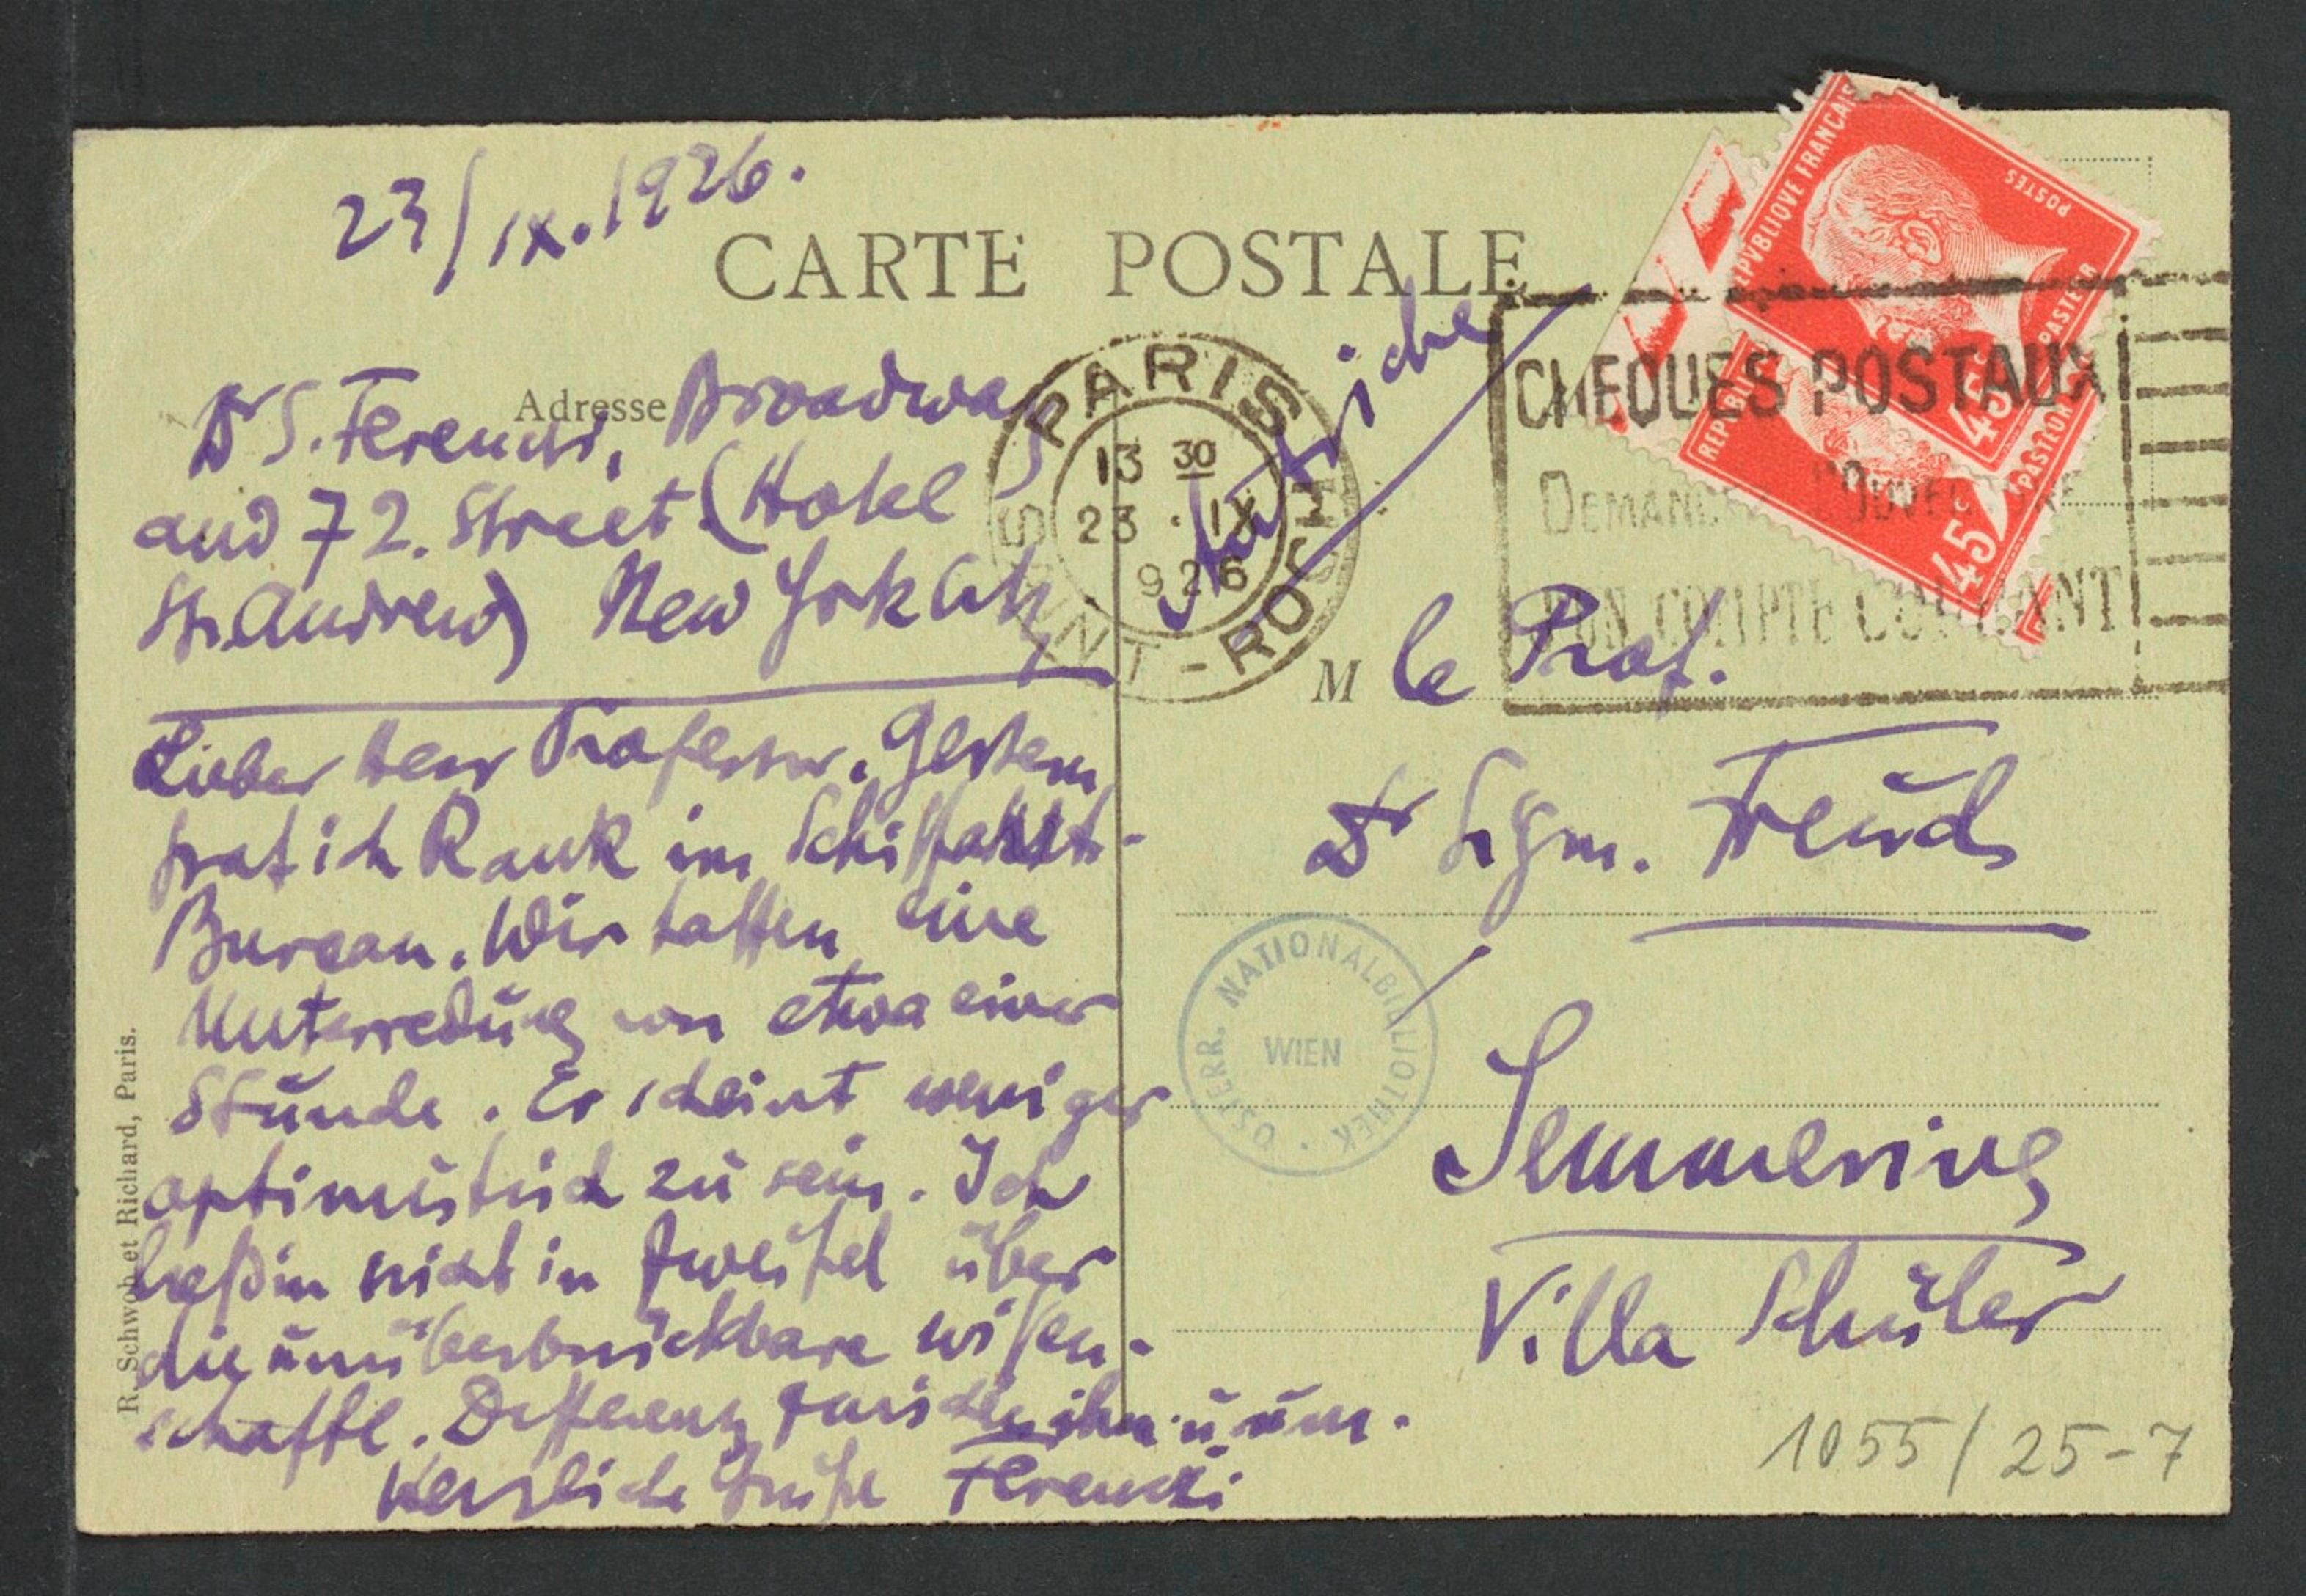 23/IX.1926.
CARTE POSTALE
Adresse
Dr S. Ferenczi, Broadway
and 72. Street (Hotel
St. Andrew) New York City
Lieber Herr Professor. Gestern
traf ich Rank im Schiffahrt-
Bureau. Wir hatten eine
Unterredung von etwa einer
Stunde. Er scheint weniger
optimistisch zu sein. Ich
ließ ihn nicht in Zweifel über
die unüberbrückbare wissen-
schaftl. Differenz zwischen ihm u uns.
Herzliche Grüße Ferenczi
R. Schwob et Richard, Paris.
PARIS
13 30
23 · IX
926
SAINT-ROCH
Autriche
REPVBLIQVE FRANÇAISE
POSTES
PASTEUR
45c
REPUBLIQUE
PASTEUR
45c
CHEQUES POSTAUX
DEMANDEZ L'OUVERTURE
D'UN COMPTE COURANT
M le Prof.
Dr Sigm. Freud
Semmering
Villa Schüler
ÖSTERR. NATIONALBIBLIOTHEK ·
WIEN
1055/25-7